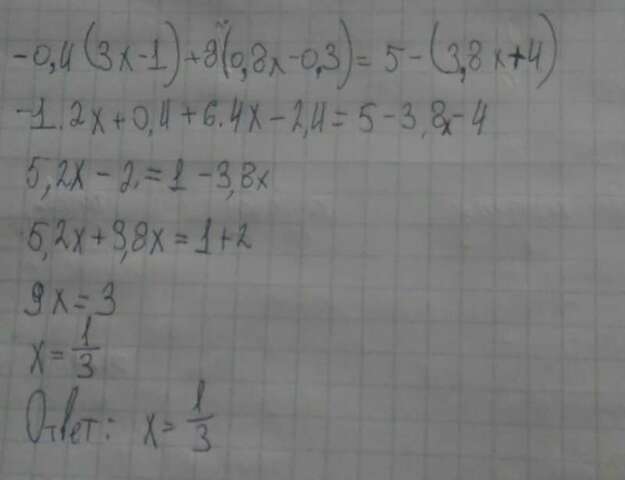 -0,4(3x-1)+8(0,8x-0,3)=5-(3,8x+4)
-1.2x+0,4+6.4x-2,4=5-3,8x-4
5,2x-2=1-3,8x
5,2x+3,8x=1+2
9x=3
x=1/3
Ответ: x=1/3